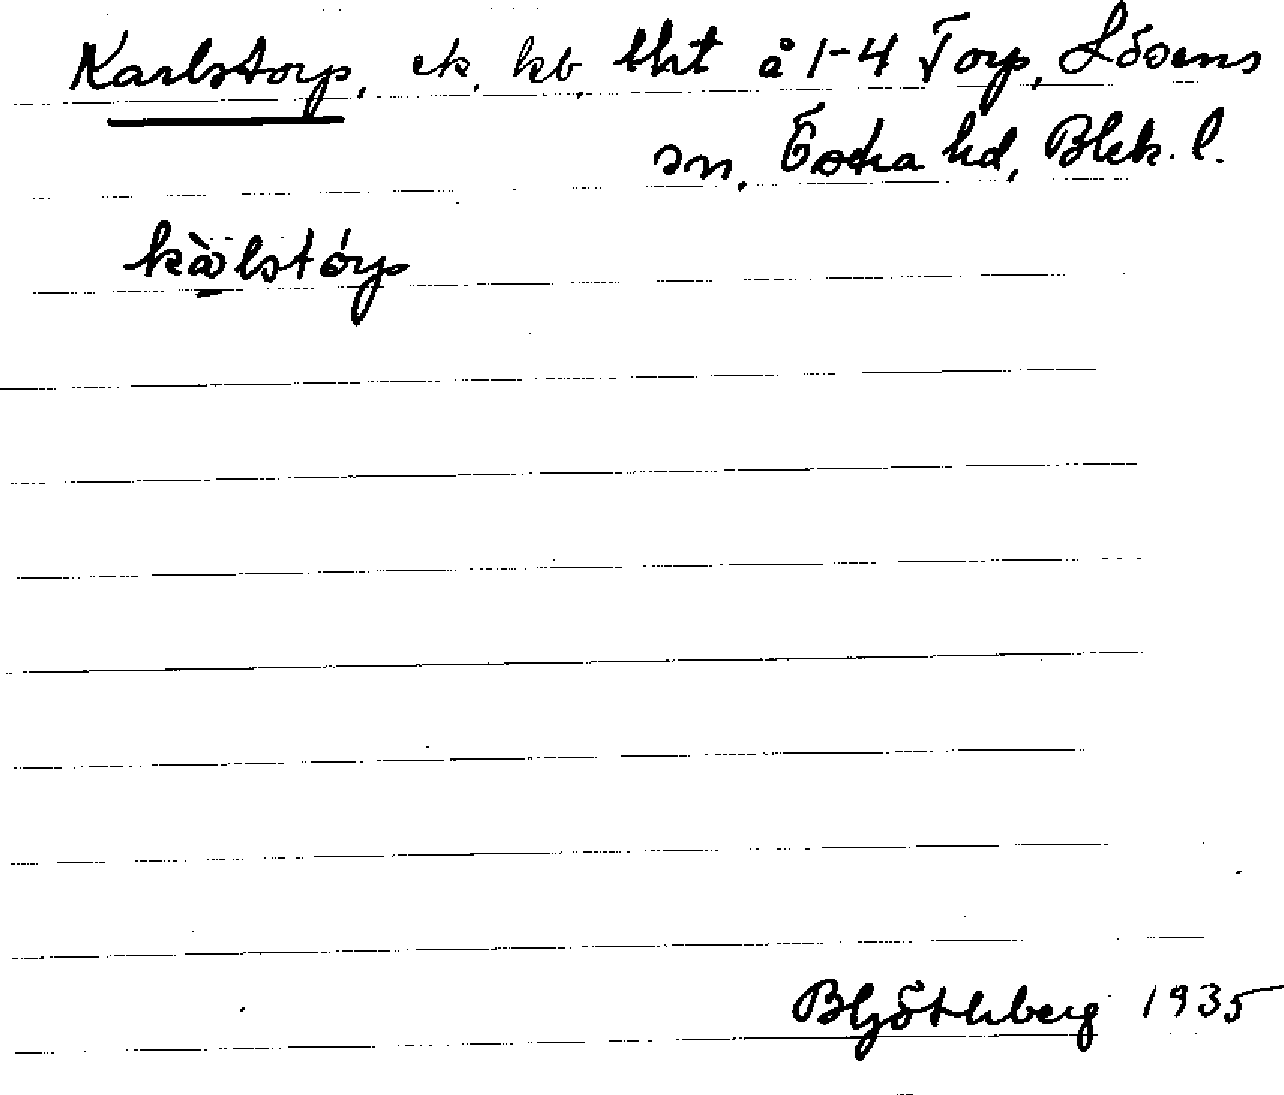 Karlstorp, ek, kb, lht å 1-4 Torp, Lösens
sn, Östra hd, Blek. l.
kàlstórp
1935